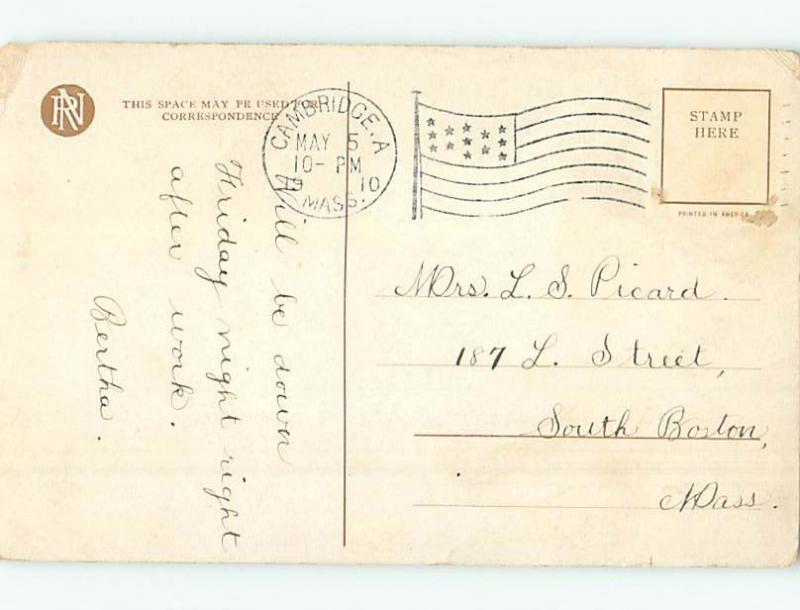 RN
THIS SPACE MAY BE USED FOR
CORRESPONDENCE
CAMBRIDGE, A
MAY 5
10- PM
10
MASS.
STAMP
HERE
PRINTED IN AMERICA
Will be down
Friday night right
after work.
Bertha.
Mrs. L. S. Picard.
187 L. Street,
South Boston,
Mass.